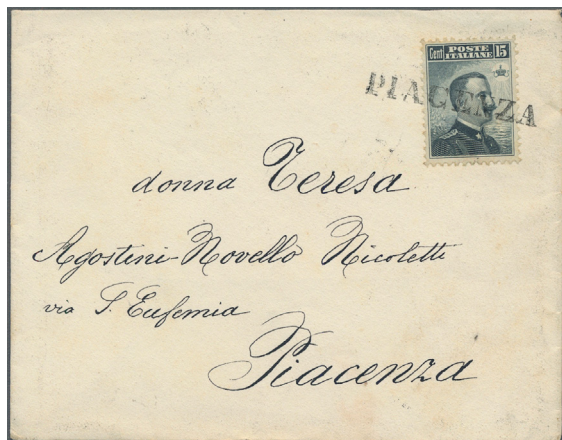 Cent POSTE ITALIANE 15
PIACENZA
donna Teresa
Agostini-Novello Nicoletti
via S. Eufemia
Piacenza